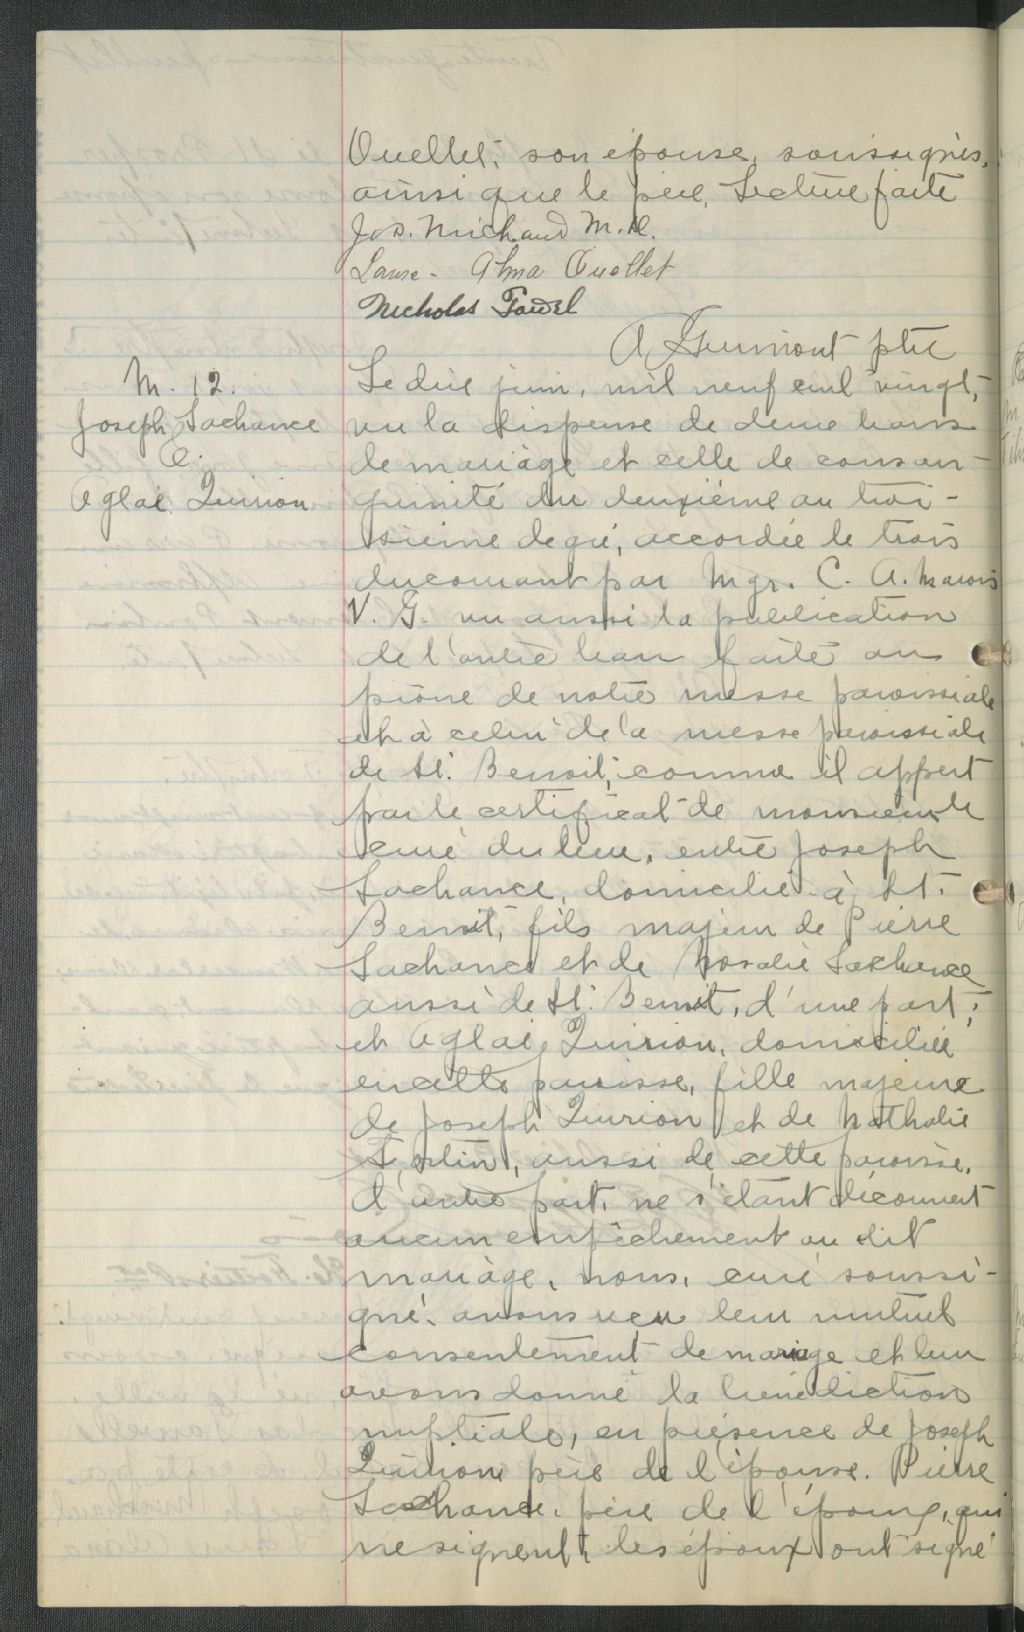 Ouellet, son épouse, soussignés,
ainsi que le père, Lecture faite
Jos. Michaud M.D.
Laure-Alma Ouellet
Nicholas Fawel
A Gumont ptre
M. 12.
Joseph Lachance
&
Aglaé Quirion
Le dix juin, mil neuf cent vingt,
vu la dispense de deux bans
de mariage et celle de consan-
guinité du deuxième au troi-
sième degré, accordée le trois
du courant par Mgr. C. A. Marois
V. G. vu aussi la publication
de l'autre ban faite au
prône de notre messe paroissiale
et à celui de la messe paroissiale
de St. Benoit, comme il appert
par le certificat de monsieur le
curé du lieu, entre Joseph
Lachance, domicilié à St.
Benoit, fils majeur de Pierre
Lachance et de Rosalie Lachance
aussi de St. Benoit, d'une part;
et Aglaé Quirion, domiciliée
en cette paroisse, fille majeure
de Joseph Quirion et de Nathalie
Fortin, aussi de cette paroisse,
d'autre part, ne s'étant découvert
aucun empêchement au dit
mariage, nous, curé soussi-
gné, avons reçu leur mutuel
consentement de mariage et leur
avons donné la bénédiction
nuptiale, en présence de Joseph
Quirion père de l'épouse. Pierre
Lachance, père de l'époux, qui
ne signent, les époux ont signé